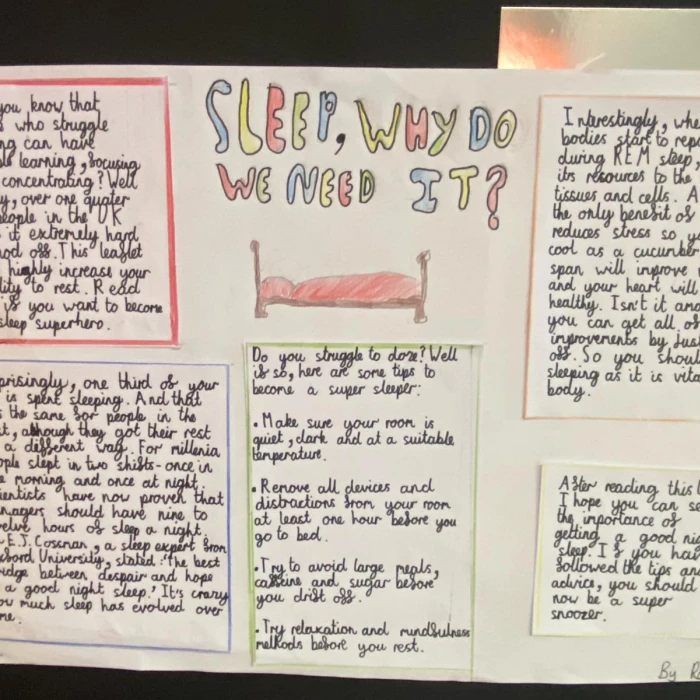 SLEEP, WHY DO
WE NEED IT?
you know that
who struggle
can have
learning, focusing
concentrating? Well
over one quater
people in the UK
it extremely hard
nod off. This leaflet
highly increase your
to rest. Read
if you want to become
sleep superhero.
one third of your
is spent sleeping. And that
the same for people in the
although they got their rest
a different way. For millenia
slept in two shifts - once in
morning and once at night.
have now proven that
should have nine to
hours of sleep a night.
E.J. Cossman, a sleep expert from
University, stated: 'The best
between despair and hope
a good night sleep.' It's crazy
much sleep has evolved over
Do you struggle to doze? Well
if so, here are some tips to
become a super sleeper:
• Make sure your room is
quiet, dark and at a suitable
temperature.
• Remove all devices and
distractions from your room
at least one hour before you
go to bed.
• Try to avoid large meals,
caffeine and sugar before
you drift off.
• Try relaxation and mindfulness
methods before you rest.
Interestingly,
bodies start to
during REM sleep,
its resources to the
tissues and cells. A
the only benefit of
reduces stress so
cool as a cucumber
span will improve
and your heart will
healthy. Isn't it
you can get all of
improvements by just
off. So you
sleeping as it is
body.
After reading this
I hope you can
the importance of
getting a good
sleep. If you
followed the tips
advice, you should
now be a super
snoozer.
By